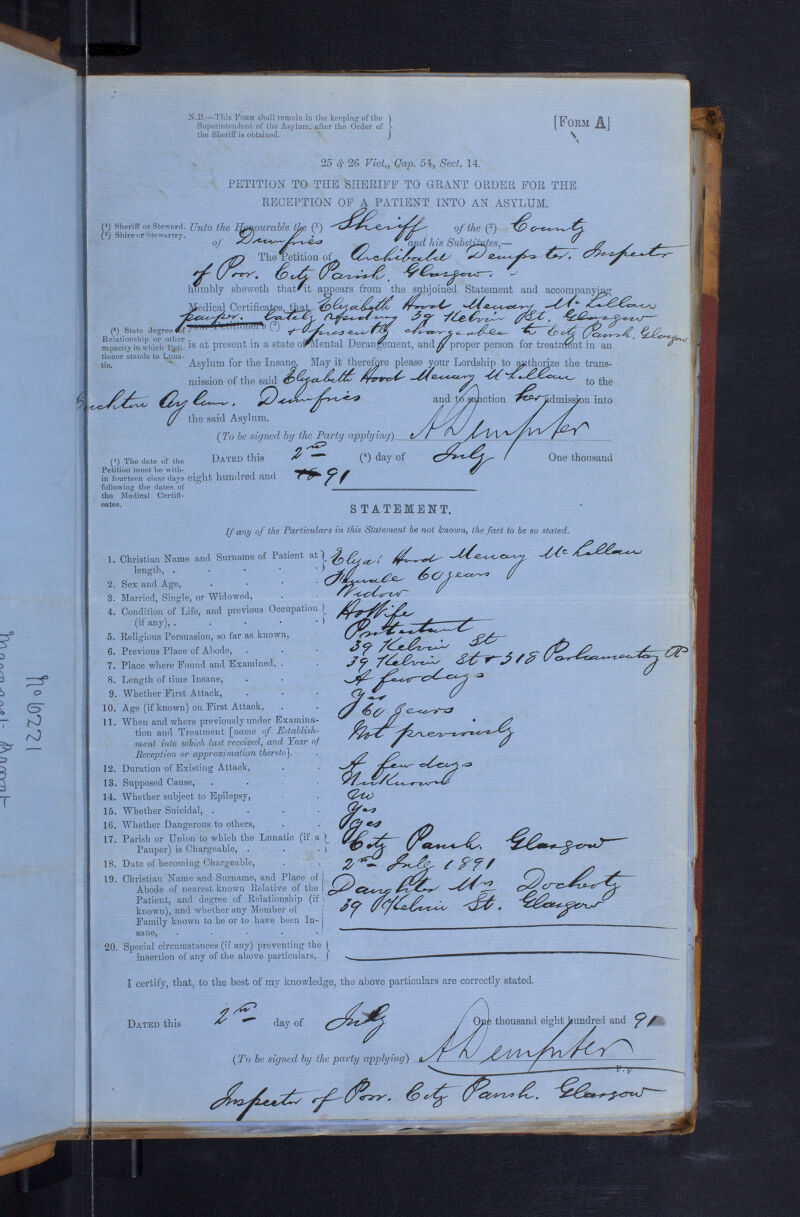 N.B.—This Form shall remain in the keeping of the
Superintendent of the Asylum, after the Order of
the Sheriff is obtained.
[Form A]
25 & 26 Vict., Cap. 54, Sect. 14.
PETITION TO THE SHERIFF TO GRANT ORDER FOR THE
RECEPTION OF A PATIENT INTO AN ASYLUM.
(¹) Sheriff or Steward.
(²) Shire or Stewartry.
Unto the Honourable the (¹) Sheriff of the (²) County
of Dumfries and his Substitutes,—
The Petition of Archibald Dempster. Inspector
of Poor. City Parish, Glasgow.
humbly sheweth that it appears from the subjoined Statement and accompanying
Medical Certificates, that Elizabeth Hood Menary McLellan
pauper. lately residing 39 Kelvin St. Glasgow
your Petitioner's (³) & presently chargeable to City Parish, Glasgow
(³) State degree of
Relationship or other
capacity in which Peti-
tioner stands to Luna-
tic.
is at present in a state of Mental Derangement, and a proper person for treatment in an
Asylum for the Insane. May it therefore please your Lordship to authorize the trans-
mission of the said Elizabeth Hood Menary McLellan to the
Asylum. Dumfries and to sanction her admission into
the said Asylum.
(To be signed by the Party applying) A Dempster
(⁴) The date of the
Petition must be with-
in fourteen clear days
following the dates of
the Medical Certifi-
cates.
Dated this 2nd (⁴) day of July One thousand
eight hundred and 91
STATEMENT.
If any of the Particulars in this Statement be not known, the fact to be so stated.
1. Christian Name and Surname of Patient at
length, . Eliza: Hood Menary McLellan
2. Sex and Age, Female 60 years
3. Married, Single, or Widowed, Widow
4. Condition of Life, and previous Occupation
(if any), . HoWife
5. Religious Persuasion, so far as known, Protestant
6. Previous Place of Abode, 39 Kelvin St
7. Place where Found and Examined, . 39 Kelvin St & 318 Parliamentary Rd
8. Length of time Insane, A few days
9. Whether First Attack, Yes
10. Age (if known) on First Attack, 60 years
11. When and where previously under Examina-
tion and Treatment [name of Establish-
ment into which last received, and Year of
Reception or approximation thereto]. Not previously
12. Duration of Existing Attack, A few days
13. Supposed Cause, Unknown
14. Whether subject to Epilepsy, No
15. Whether Suicidal, . Yes
16. Whether Dangerous to others, Yes
17. Parish or Union to which the Lunatic (if a
Pauper) is Chargeable, . City Parish. Glasgow
18. Date of becoming Chargeable, 2nd July 1891
19. Christian Name and Surname, and Place of
Abode of nearest known Relative of the
Patient, and degree of Relationship (if
known), and whether any Member of
Family known to be or to have been In-
sane,
Daughter Mrs Docherty
39 Kelvin St. Glasgow
20. Special circumstances (if any) preventing the
insertion of any of the above particulars,
I certify, that, to the best of my knowledge, the above particulars are correctly stated.
Dated this 2nd day of July One thousand eight hundred and 91
(To be signed by the party applying) A Dempster
P.P
Inspector of Poor. City Parish. Glasgow
No 6221